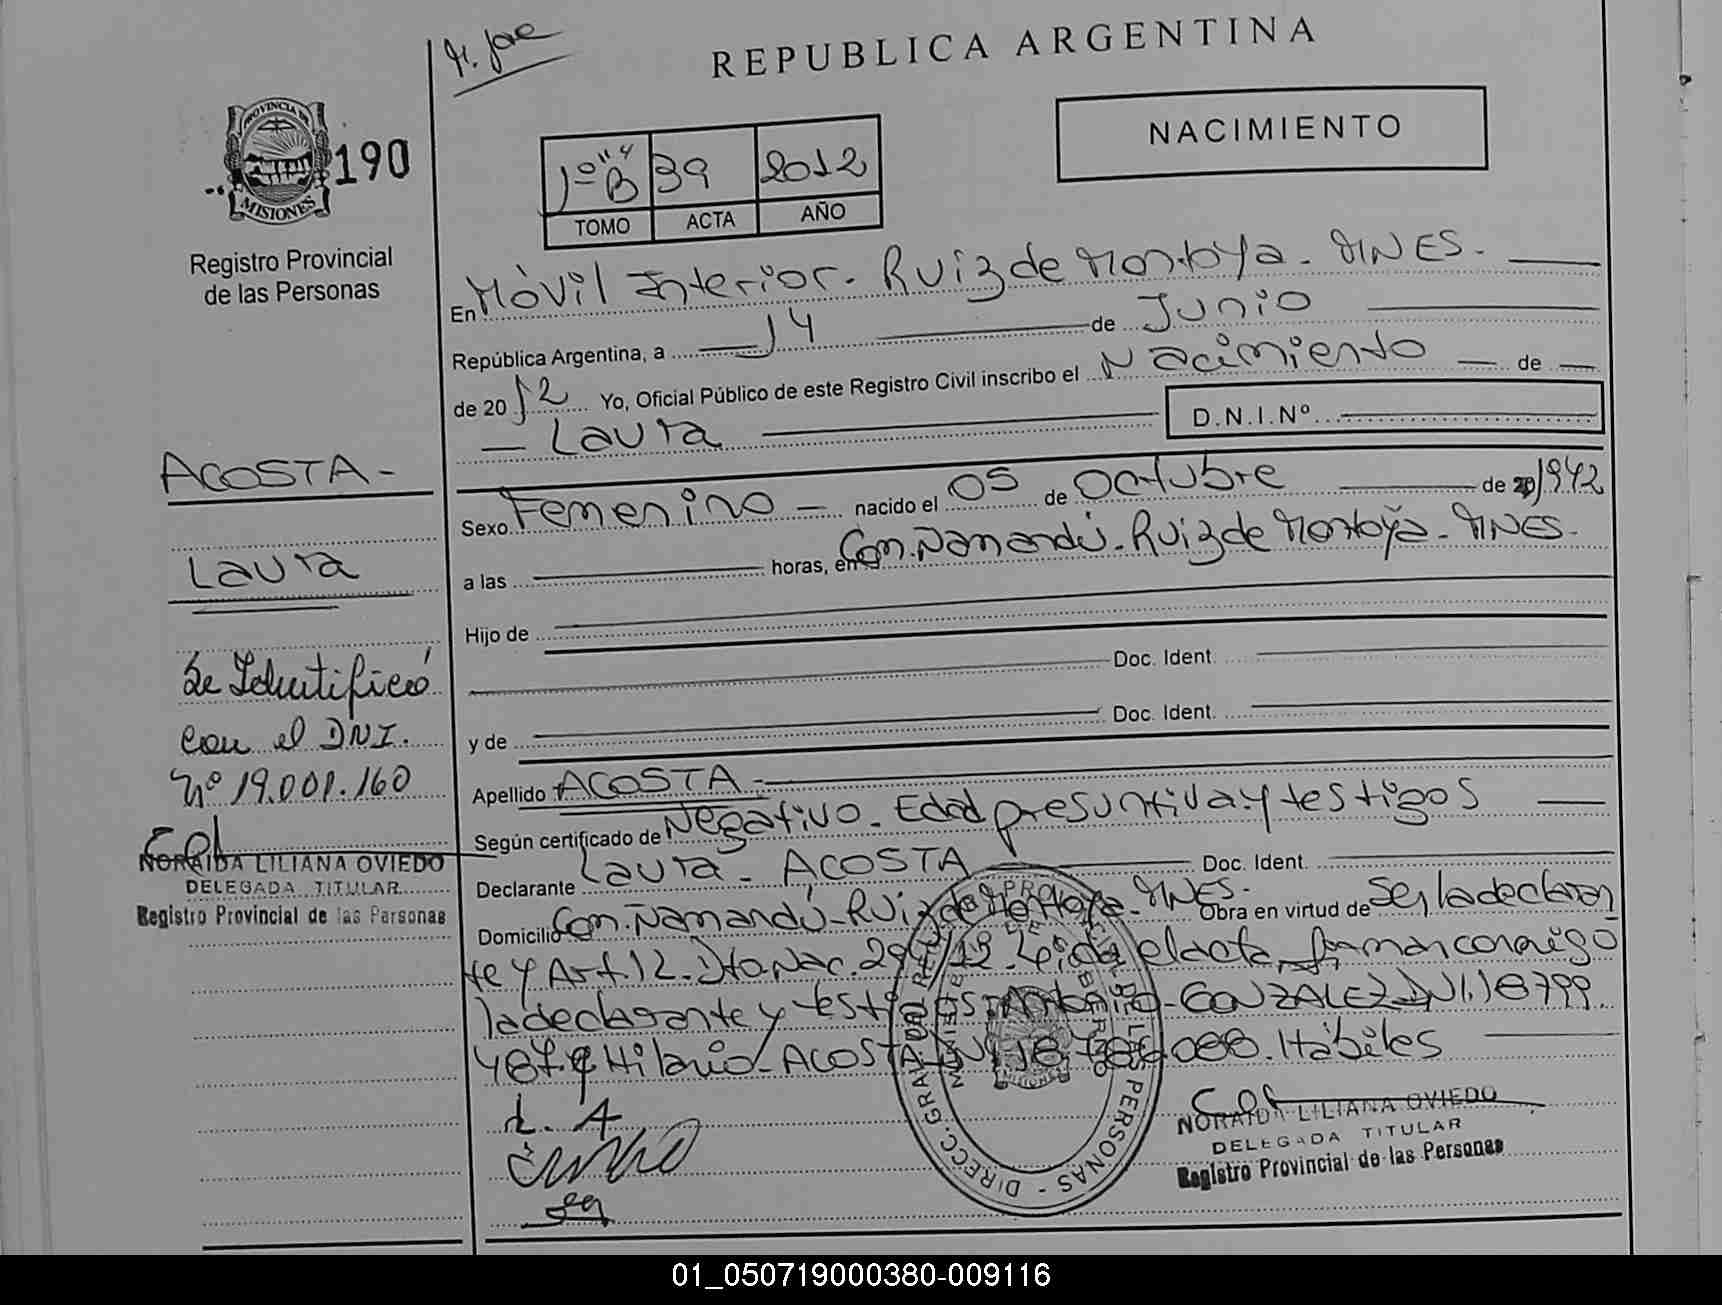 M. Jore
REPUBLICA ARGENTINA
PROVINCIA DE
MISIONES
190
NACIMIENTO
1º "B" 39 2012
TOMO ACTA AÑO
Registro Provincial
de las Personas
En Móvil Interior. Ruiz de Montoya. MNES.
República Argentina, a 14 de Junio
de 2012 Yo, Oficial Público de este Registro Civil inscribo el Nacimiento de
Laura D.N.I.Nº
ACOSTA -
Laura
Sexo Femenino nacido el 05 de Octubre de 20 1942
a las horas, en Com. Ñamandú. Ruiz de Montoya. MNES.
Hijo de
Doc. Ident.
y de Doc. Ident.
Se Identificó
con el DNI.
Nº 19.001.160
NORAIDA LILIANA OVIEDO
DELEGADA TITULAR
Registro Provincial de las Personas
Apellido ACOSTA.
Según certificado de Negativo. Edad presuntiva y testigos
Declarante Laura - ACOSTA Doc. Ident.
Domicilio Com. Ñamandú - Ruiz de Montoya. MNES. Obra en virtud de Ser la declaran
te y Art. 12. Dto. Nac. 294/12. Leida el acta, firman conmigo
la declarante y testigos: Antonio - GONZALEZ DNI. 18799
487. y Hilario - ACOSTA DNI 18. .088. Hábiles
L. A
NORAIDA LILIANA OVIEDO
DELEGADA TITULAR
Registro Provincial de las Personas
DIRECC. GRAL. DE LAS PERSONAS
01_050719000380-009116